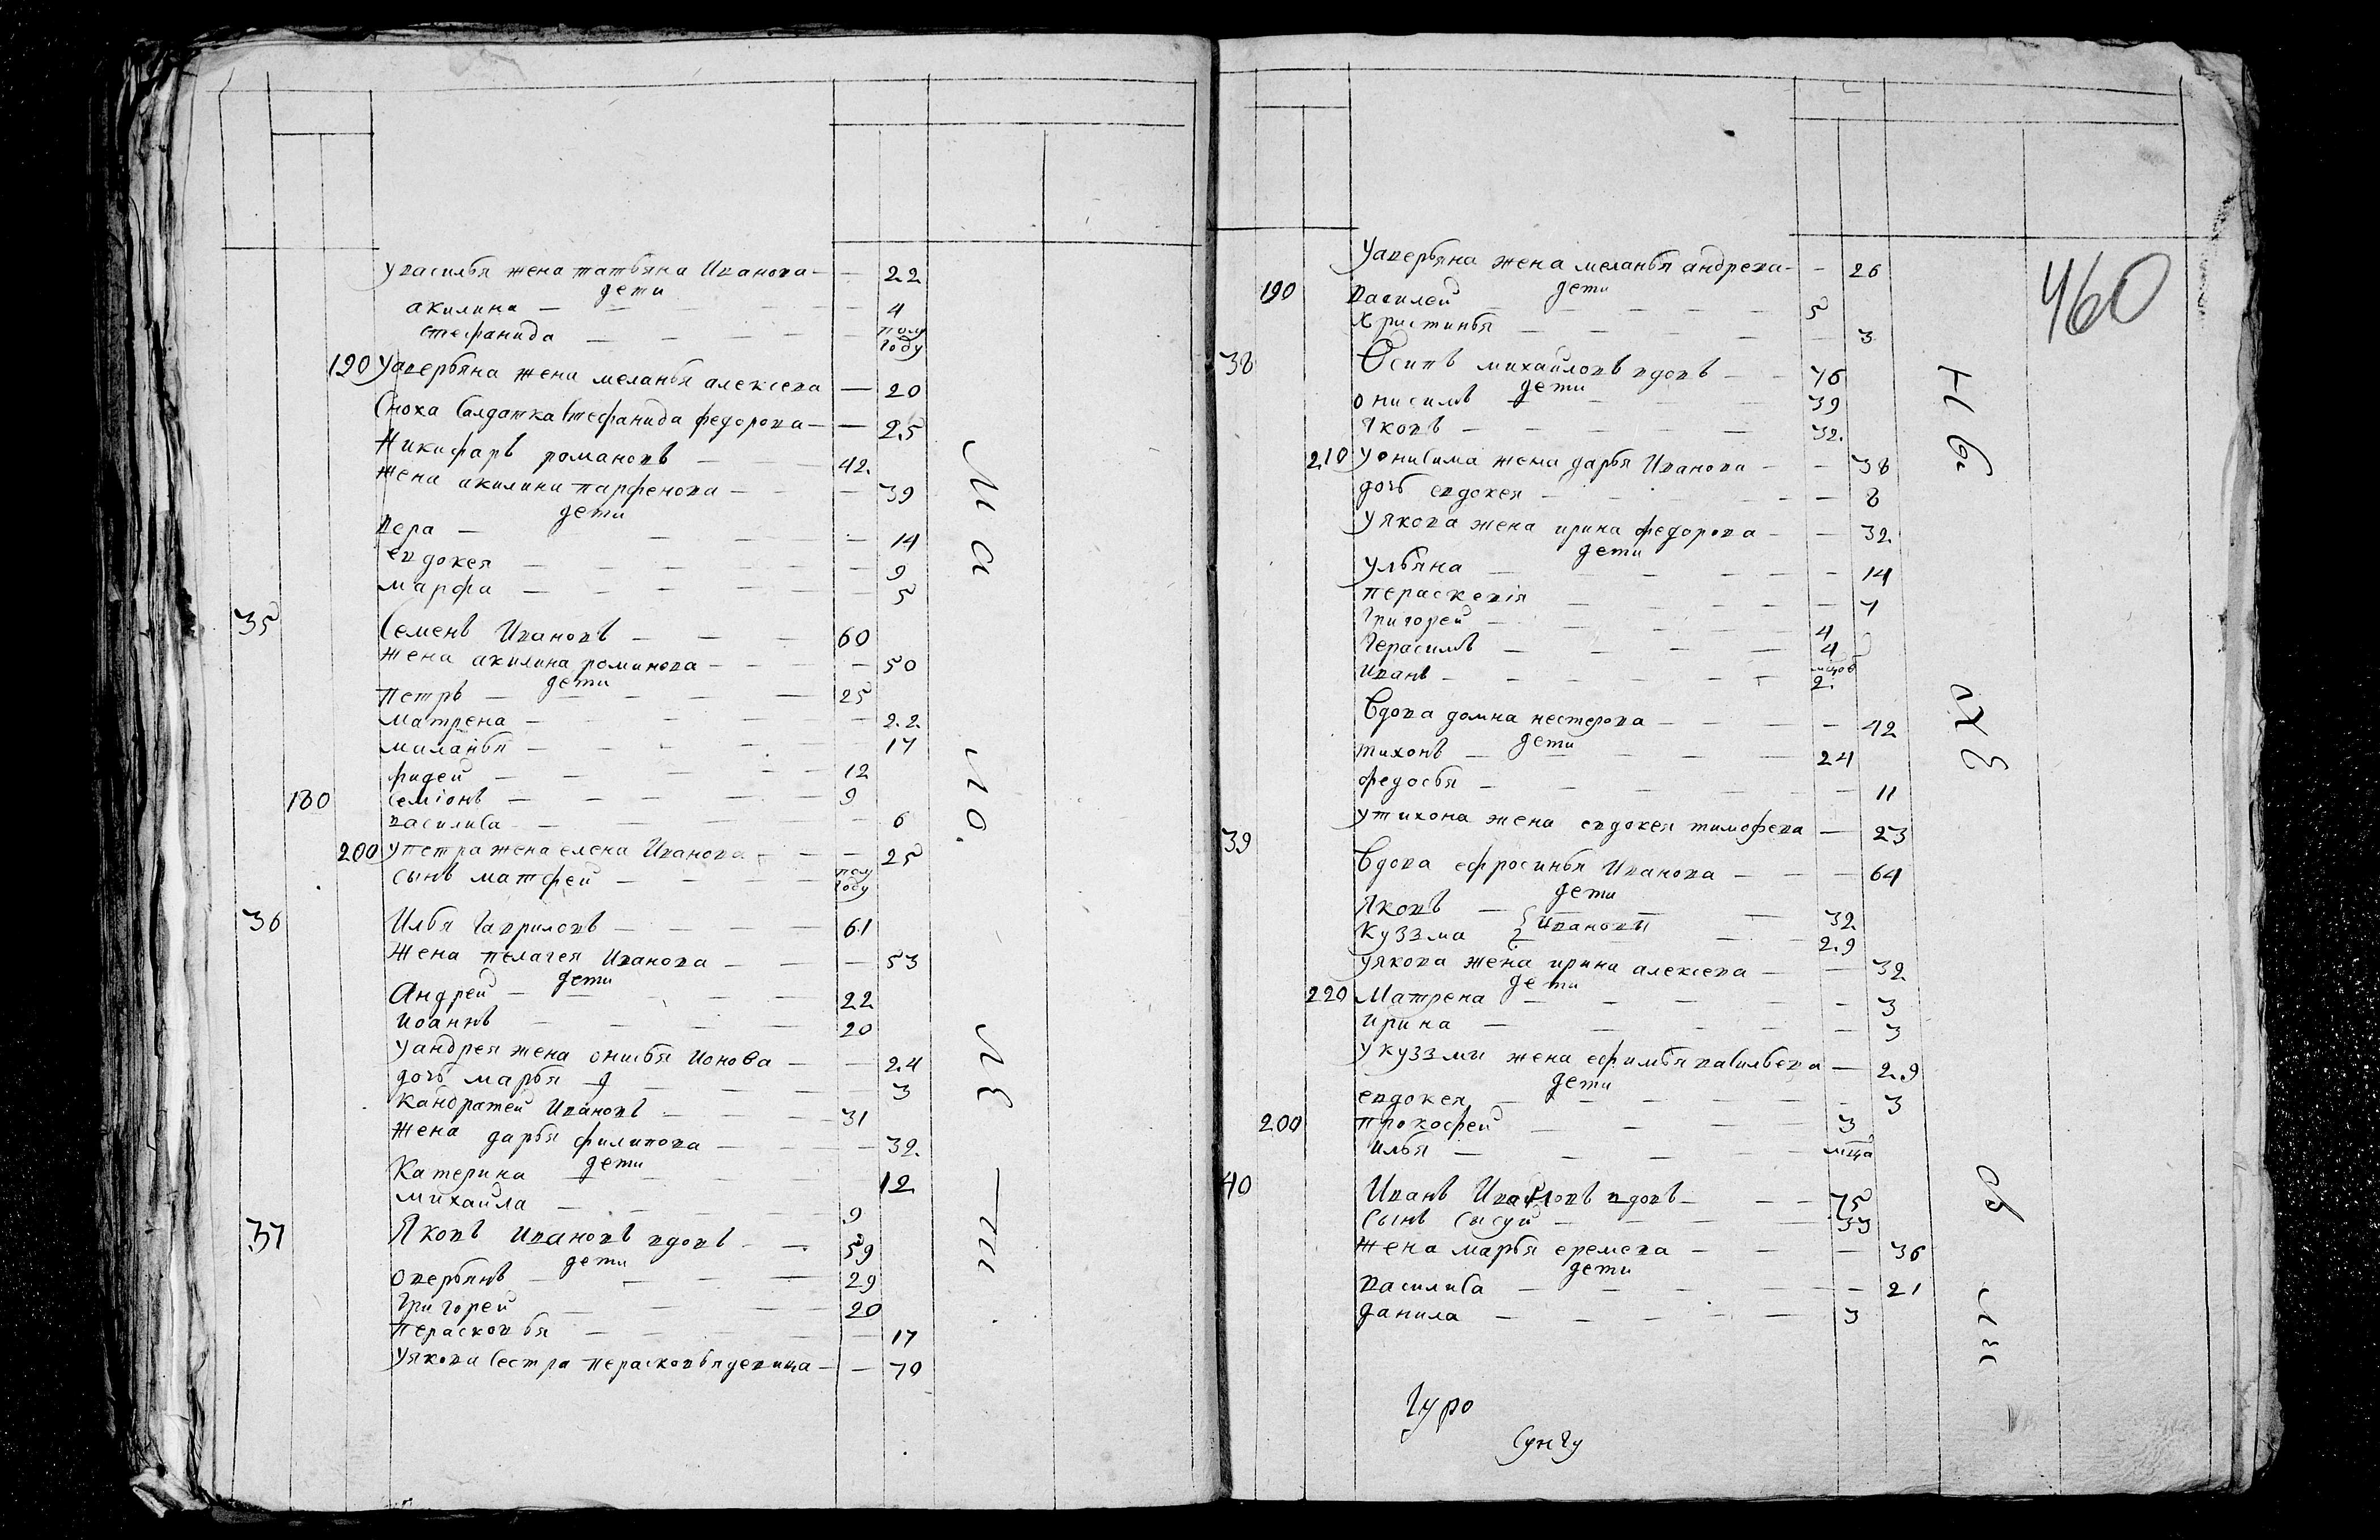 увасилья жена татьяна Иванова — — 22
дети
акилина — — — — 4
стефанида — — — — полу году
190 Уаверьяна жена меланья алексева — 20
Сноха Салдатка Стефанида федорова — — 25
Никифаръ романовъ — — 42
жена акилина парфенова — — — 39
дети
вера — — — — 14
евдокея — — — — — 9
марфа — — — — — 5
35 Семенъ Ивановъ — — — 60
жена акилина романова — — — 50
дети
петръ — — — — 25
матрена — — — — 22
миланья — — — — 17
фадей — — — — 12
180 семіонъ — — — — 9
василиса — — — — 6
200 упетра жена елена Иванова — — — 25
сынъ матфей — — — полу году
36 Илья Гавриловъ — — — 61
жена пелагея Иванова — — — 53
дети
Андрей — — — — 22
иоаннъ — — — — 20
уандрея жена онисья ионова — — 24
дочь марья — — — 3
кандратей Ивановъ — — — 31
жена дарья филипова — — — 32
дети
Катерина — — — 12
михаила — — — — 9
37 Яковъ Ивановъ вдовъ — — 59
дети
оверьянъ — — — 29
Григорей — — — 20
перасковья — — — — 17
уякова Сестра перасковья девица — — 70
ли
а
по.
ле
—
460
Уаверьяна жена меланья андрева — — 26
дети
190 василей — — — — 5
христинья — — — — 3
38 Осипъ михайловъ вдовъ — — 76
дети
онисимъ — — — 39
яковъ — — — — 32
210 уонисима жена дарья Иванова — — 38
дочь евдокея — — — — 8
уякова жена ирина федорова — — 32
дети
ульяна — — — — 14
перасковія — — — — 7
Григорей — — — — 4
Герасимъ — — — — 4
иванъ — — — — мцов 2
Вдова домна нестерова — — — — 42
дети
тихонъ — — — — 24
федосья — — — — — 11
утихона жена евдокея тимофева — 23
39 Вдова ефросинья Иванова — — — 64
дети
яковъ — — — 32
Ивановы
куззма — — 29
уякова жена ирина алексева — — 32
дети
220 Матрена — — — — 3
ирина — — — — 3
укуззми жена ефимья васильева — 29
дети
евдокея — — — — 3
200 прокофей — — — 3
илья — — — — мца
40 Иванъ вдовъ — — — 75
Сынъ Сысуй — — — 33
жена марья еремева — — — 36
дети
василиса — — — — 21
данила — — — — 3
Гуро
Сунгу